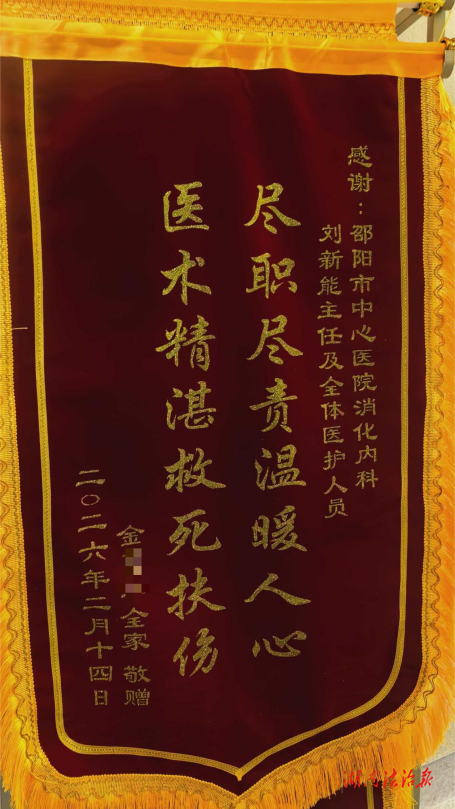 感谢：邵阳市中心医院消化内科
刘新能主任及全体医护人员
尽职尽责温暖人心
医术精湛救死扶伤
金 全家 敬赠
二〇二六年二月十四日
法治报